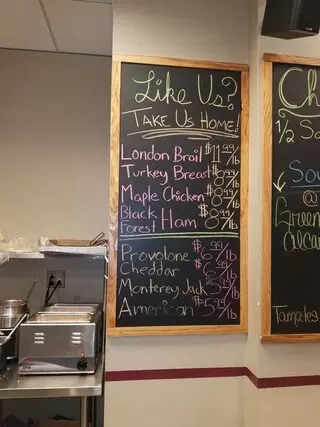 Like Us?
Take Us Home!
London Brail $11.99/lb
Turkey Breast $8.99/lb
Maple Chicken $8.99/lb
Black Forest Ham $8.99/lb
Provolone /lb
Cheddar /lb
Monterey Jack /lb
American $5.99/lb
Ch
1/2
@
Green
Tamales